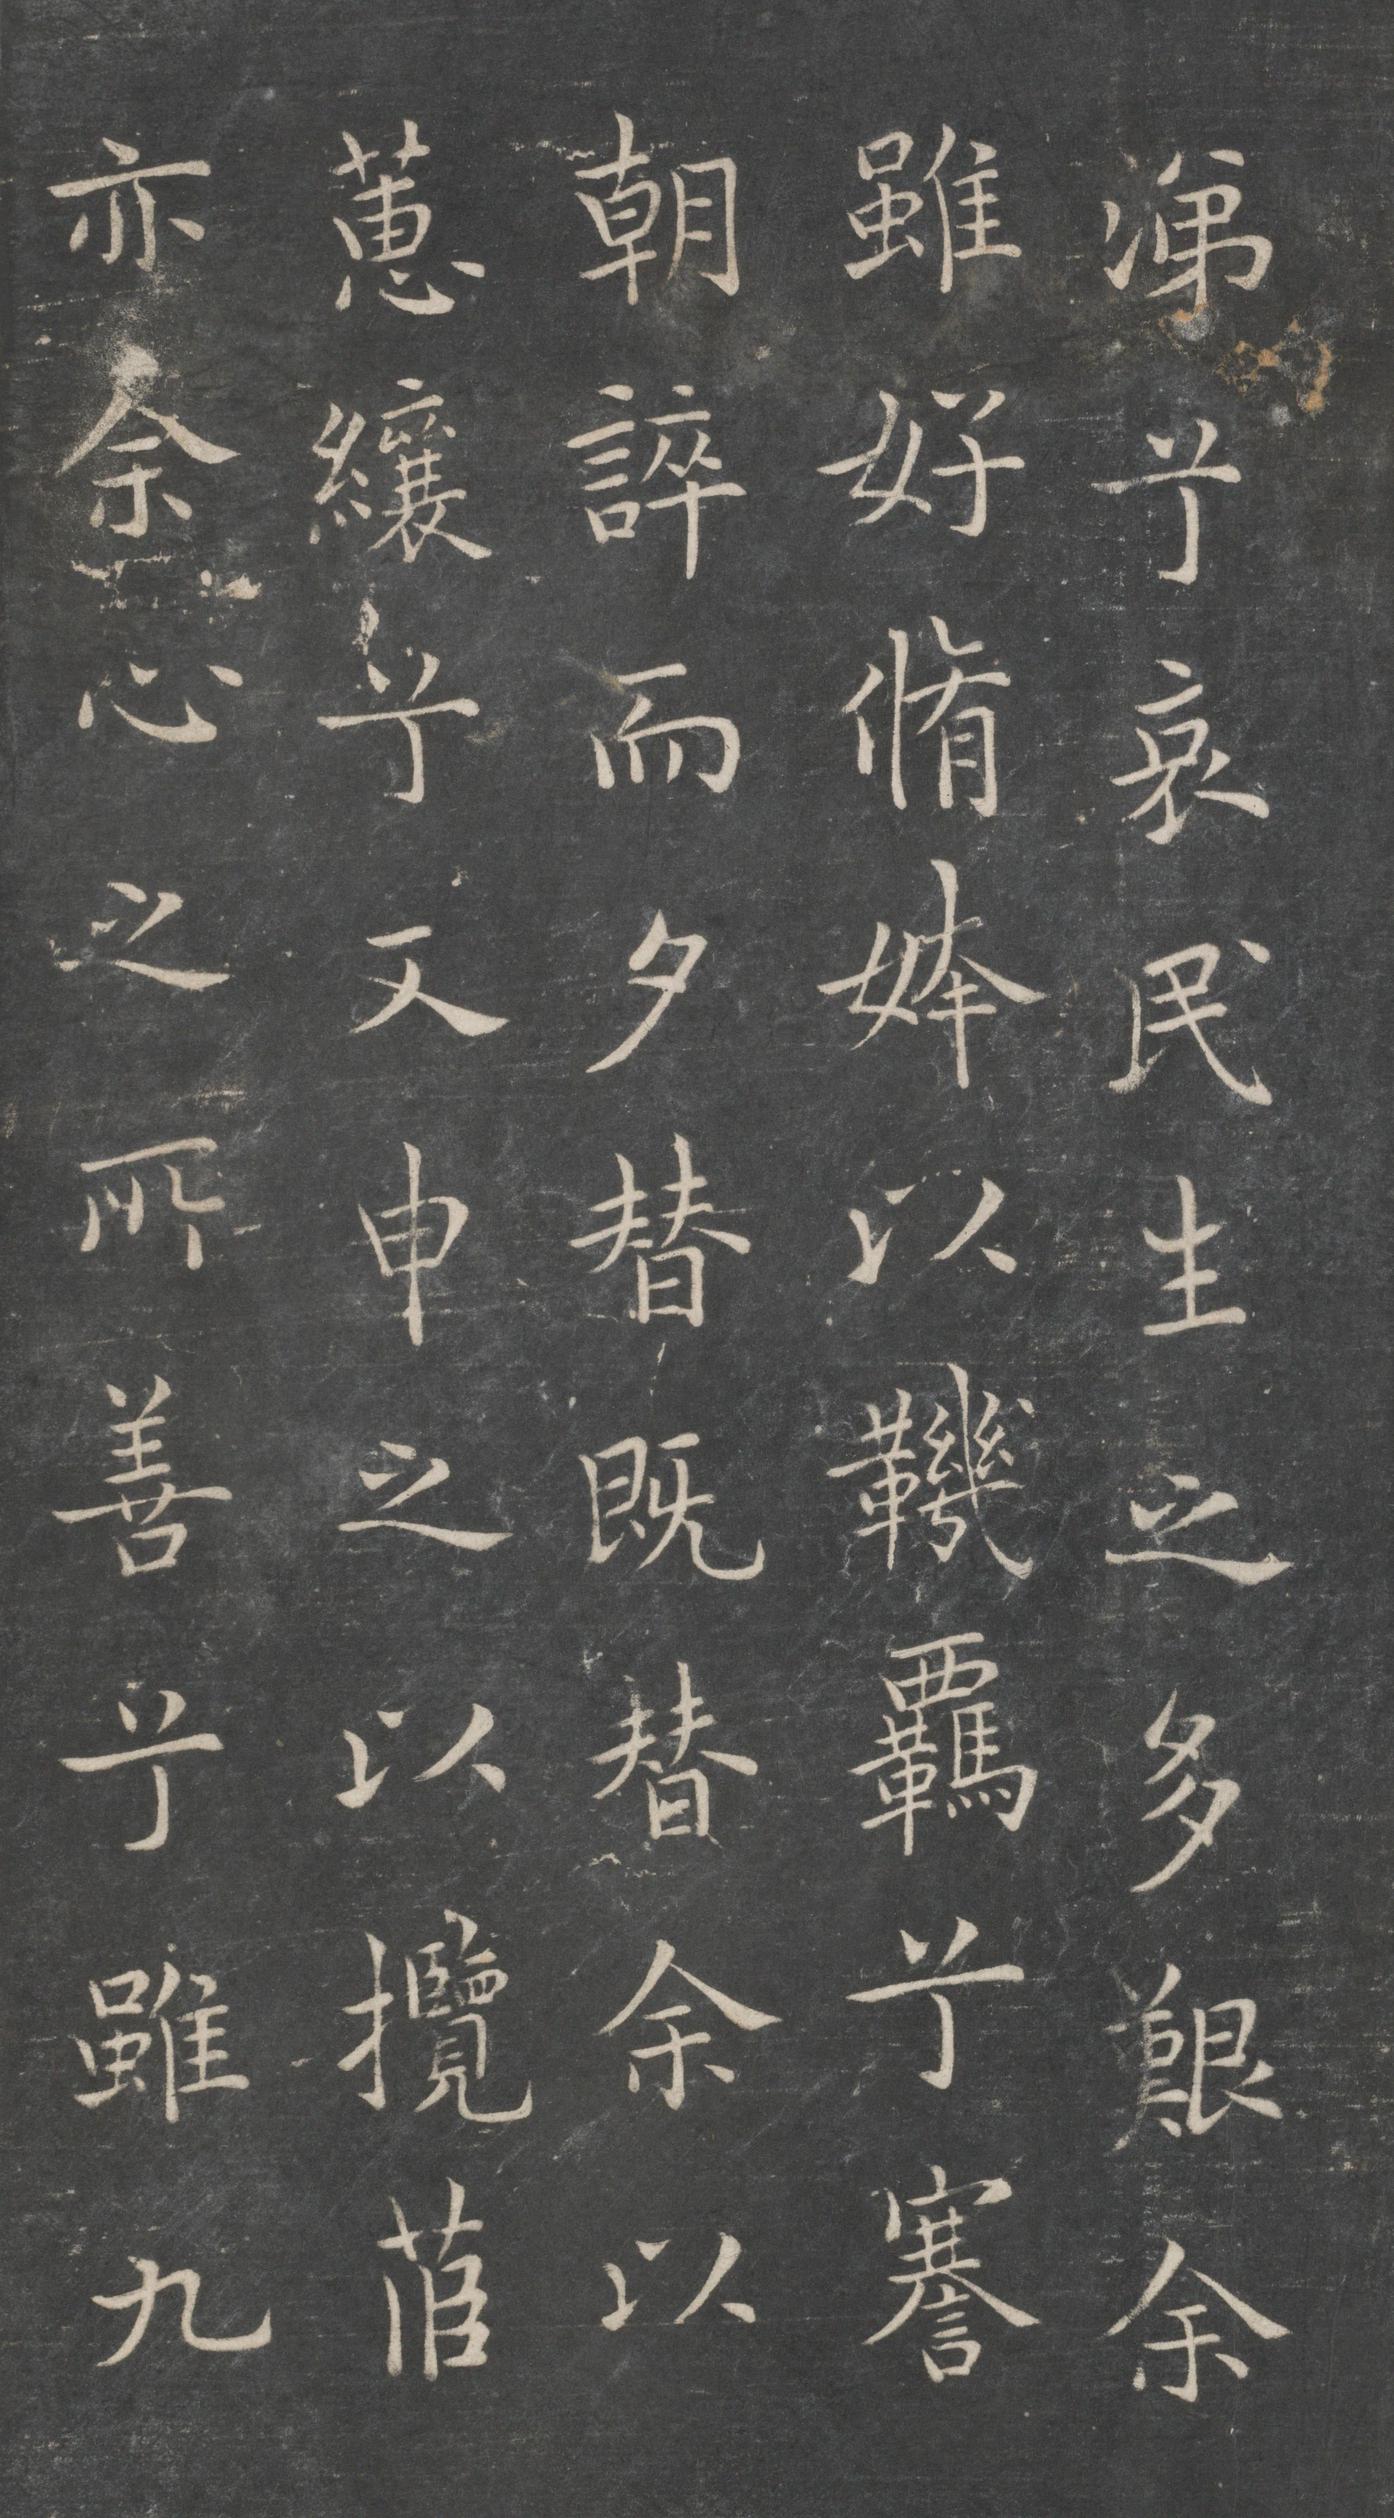 涕兮哀民生之多艱余
雖好脩姱以鞿覊兮謇
朝誶而夕替既替余以
蕙纕兮又申之以攬茝
亦余心之所善兮雖九